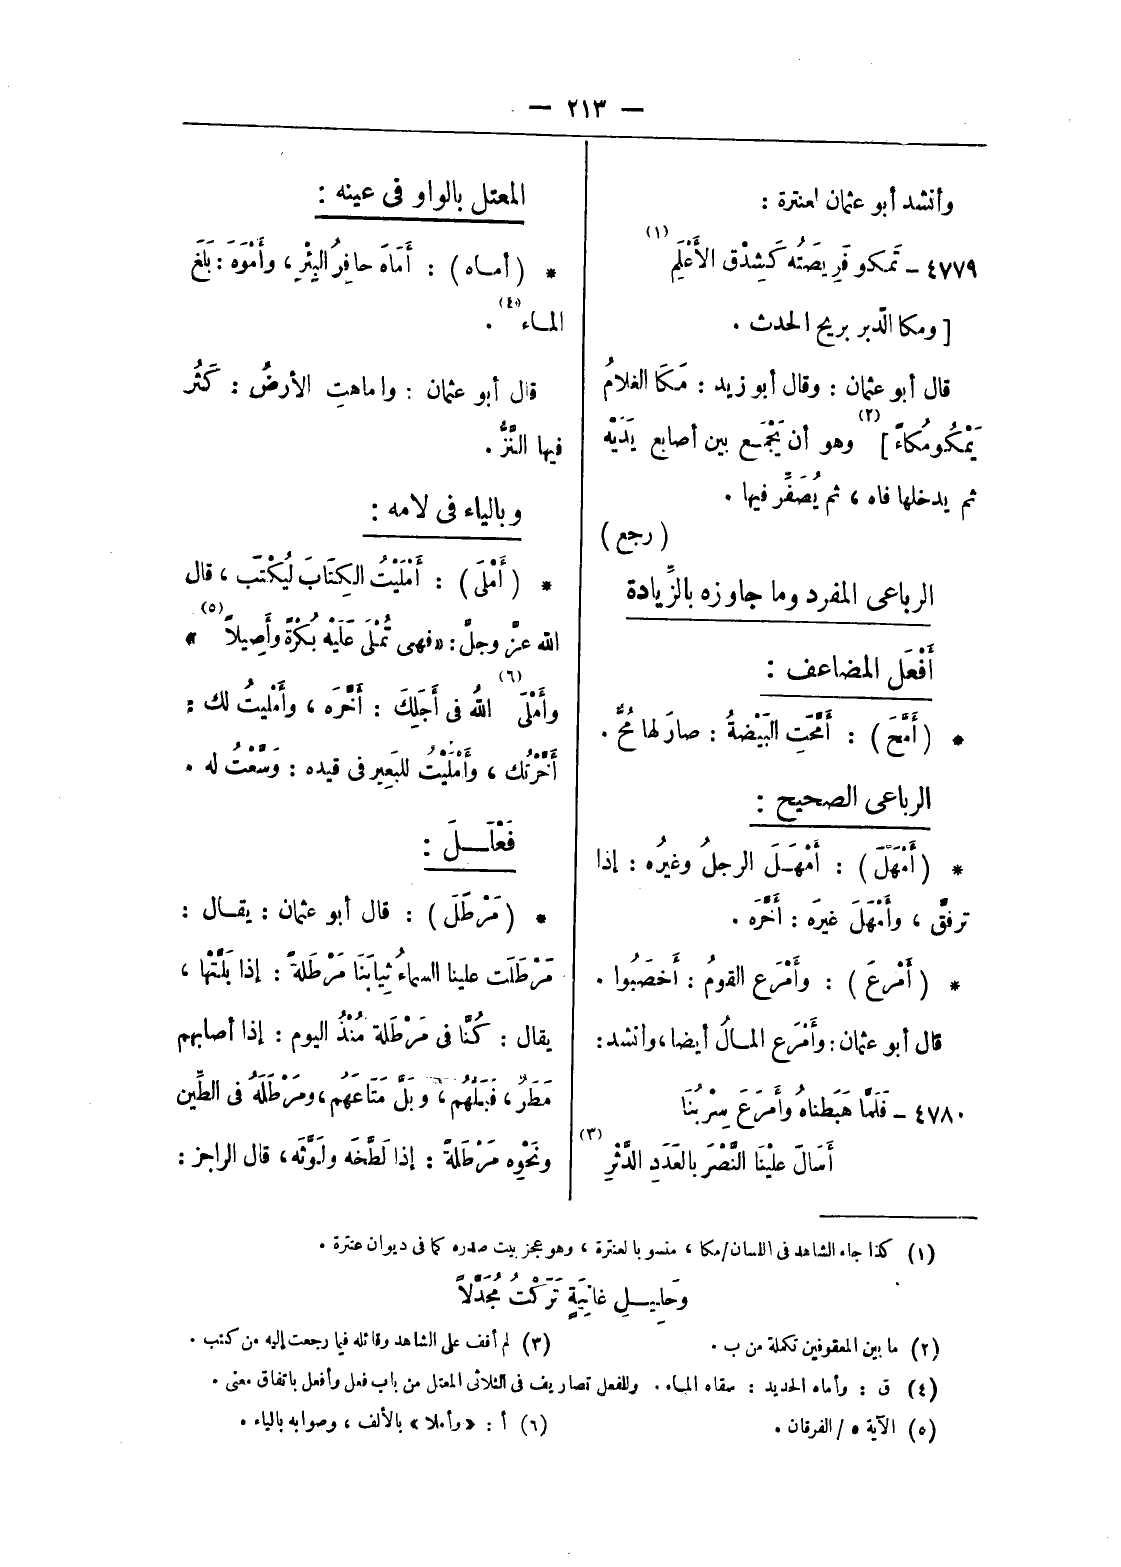 — ٢١٣ —
وأنشد أبو عثمان لعنترة :
٤٧٧٩ – تَمكو فَرِيصَتُه كَشِدْق الأَعْلَمِ (١)
[ ومكا الدّبر بريح الحدث .
قال أبو عثمان : وقال أبو زيد : مَكَا الغلامُ
يَمْكُو مُكاءً ] (٢) وهو أن يَجْمَع بين أصابع يَدَيْه
ثم يدخلها فاه ، ثم يُصَفِّر فيها .
( رجع )
الرباعى المفرد وما جاوزه بالزِّيادة
أَفْعَل المضاعف :
* ( أَمَحَّ ) : أَمَحَّتِ البَيْضةُ : صارَ لها مُحٌّ .
الرباعى الصحيح :
* ( أَمْهَلَ ) : أَمْهَلَ الرجلُ وغيرُه : إذا
ترفقَّ ، وأَمْهَلَ غيرَه : أَخَّرَه .
* ( أَمْرعَ ) : وأَمْرَع القومُ : أَخصَبُوا .
قال أبو عثمان : وأَمْرَع المالُ أيضا ، وأنشد :
٤٧٨٠ – فَلَمَّا هَبَطناهُ وأَمرَعَ سِرْبُنَا
أَسَالَ علَيْنا النَّصْرَ بالعَدَدِ الدَّثْرِ (٣)
المعتل بالواو فى عينه :
* ( أماه ) : أَمَاهَ حافِرُ البِئْرِ ، وأَمْوَهَ : بَلَغَ
الماء (٤) .
قال أبو عثمان : واماهتِ الأرضُ : كَثُر
فيها النَّزُّ .
وبالياء فى لامه :
* ( أَمْلَى ) : أَمْلَيْتُ الكِتَابَ ليُكْتَب ، قال
الله عزَّ وجلَّ : «فهى تُمْلَى عَلَيْه بُكْرَةً وأَصِيلاً (٥) »
وأَمْلَى (٦) اللهُ فى أَجَلِكَ : أَخَّرَه ، وأَمْليتُ لك :
أَخَّرْتُك ، وأَمْلَيْتُ للبَعِيرِ فى قيده : وَسَّعْتُ له .
فَعْلَلَ :
* ( مَرْطَلَ ) : قال أبو عثمان : يقال :
مَرْطَلَت علينا السماءُ ثِيابَنَا مَرْطَلةً : إذا بَلَّتْها ،
يقال : كُنَّا فى مَرْطَلة مُنْذُ اليوم : إذا أصابهم
مَطَرٌ ، فَبَلَّهُم ، وبَلَّ مَتَاعَهُم ، ومَرْطَلَهُ فى الطِّين
ونَحْوِه مَرْطَلةً : إذا لَطَّخَه ولَوَّثَه ، قال الراجز :
(١) كذا جاء الشاهد فى اللسان/مكا ، منسوبا لعنترة ، وهو عجز بيت صدره كما فى ديوان عنترة .
وحَلِيلِ غانِيَةٍ تَرَكْتُ مُجَدَّلاً
(٢) ما بين المعقوفين تكملة من ب .
(٣) لم أقف على الشاهد وقائله فيما رجعت إليه من كتب .
(٤) ق : وأماه الحديد : سقاه الماء . وللفعل تصاريف فى الثلاثى المعتل من باب فعل وأفعل باتفاق معنى .
(٥) الآية ٥ / الفرقان .
(٦) أ : «وأملا» بالألف ، وصوابه بالياء .